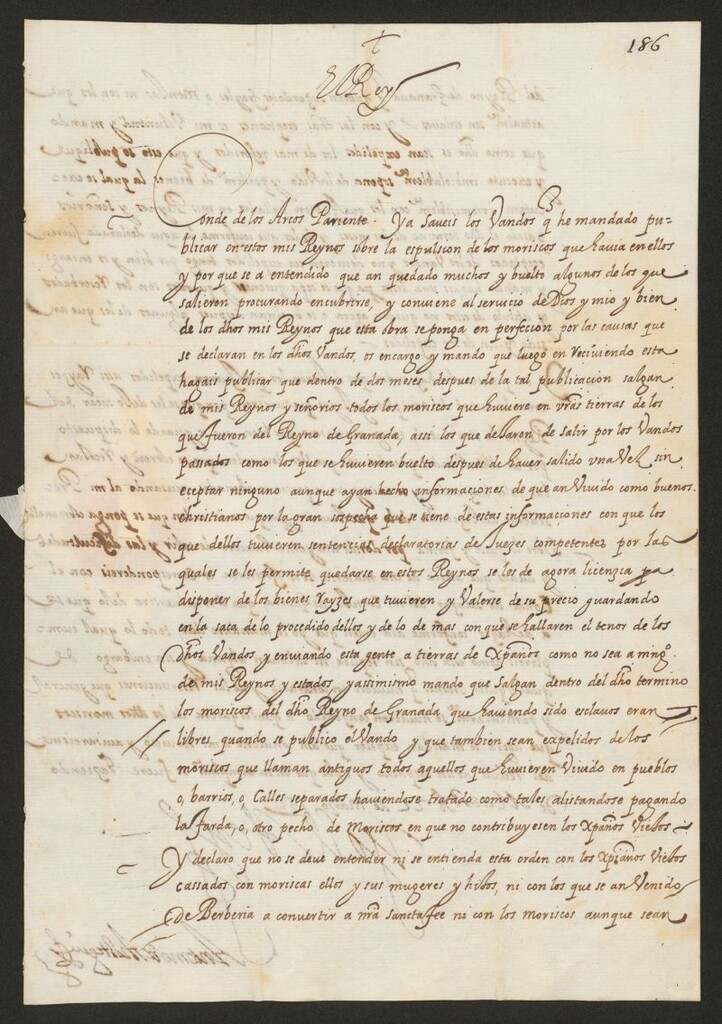 186
+
El Rey
Conde de los Arcos Pariente. Ya saveis los Vandos q̃ he mandado pu-
blicar en estos mis Reynos sobre la espulsion de los moriscos que havia en ellos
y por que se a entendido que an quedado muchos y buelto algunos de los que
salieron procurando encubrirse, y conviene al servicio de Dios y mio y bien
de los dhos mis Reynos que esta obra se ponga en perfeción por las causas que
se declaran en los dhos Vandos, os encargo y mando que luego en reciviendo esta
hagais publicar que dentro de dos meses despues de la tal publicacion salgan
de mis Reynos y señorios todos los moriscos que huviere en vrãs tierras de los
que fueron del Reyno de Granada, assi los que dexaron de salir por los Vandos
passados como los que se huvieren buelto despues de haver salido una vez sin
eceptar ninguno aunque ayan hecho informaciones de que an vivido como buenos
christianos por la gran sospecha que se tiene de estas informaciones con que los
que dellos tuvieren sentencias declaratorias de Juezes competentes por las
quales se les permite quedarse en estos Reynos se les de agora licenzia pa
disponer de los bienes rayzes que tuvieren y Valerse de su precio guardando
en la saca de lo procedido dellos y de lo de mas con que se hallaren el tenor de los
dhos Vandos y enviando esta gente a tierras de Xpãnos como no sea a ning.º
de mis Reynos y estados, y assimismo mando que salgan dentro del dho termino
los moriscos del dho Reyno de Granada que haviendo sido esclavos eran
libres quando se publico el Vando y que tambien sean expelidos de los
moriscos que llaman antiguos todos aquellos que huvieren vivido en pueblos
o, barrios, o, Calles separados haviendose tratado como tales alistandose pagando
la farda, o, otro pecho de Moriscos en que no contribuyesen los Xpãnos Viejos
Y declaro que no se deve entender ni se entienda esta orden con los Xpianos Viejos
cassados con moriscas ellos y sus mugeres y hijos, ni con los que se an Venido
de Berberia a convertir a nrã sancta fee ni con los moriscos aunque sean